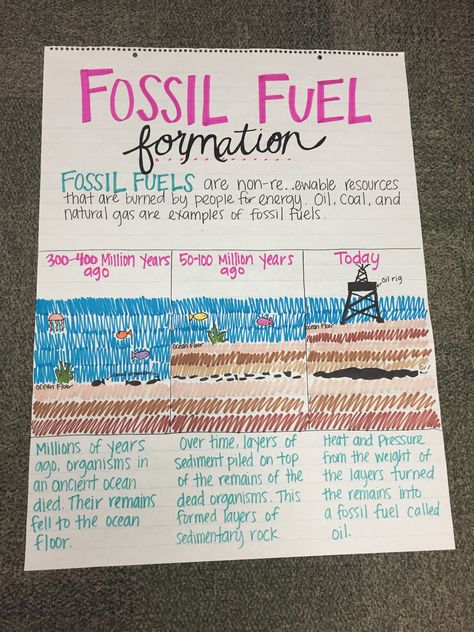 FOSSIL FUEL
formation
FOSSIL FUELS are non-re..ewable resources
that are burned by people for energy. Oil, Coal, and
natural gas are examples of fossil fuels.
300-400 Million Years
ago
ocean Floor
Millions of years
ago, organisms in
an ancient ocean
died. Their remains
fell to the ocean
floor.
50-100 Million Years
ago
ocean Floor
Over time, layers of
sediment piled on top
of the remains of the
dead organisms. This
formed layers of
sedimentary rock.
Today
oil rig
ocean Floor
Oil
Heat and Pressure
from the weight of
the layers turned
the remains into
a fossil fuel called
oil.